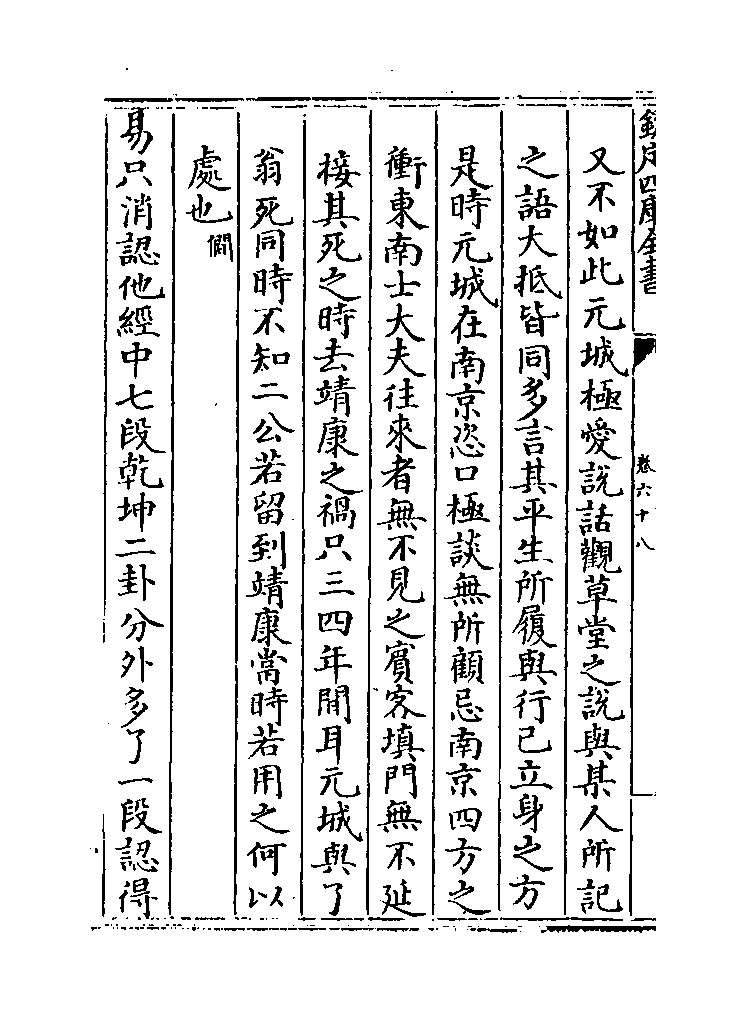 欽定四庫全書
卷六十八
又不如此元城極愛說話觀草堂之說與某人所記
之語大抵皆同多言其平生所履與行已立身之方
是時元城在南京恣口極談無所顧忌南京四方之
衝東南士大夫往來者無不見之賓客填門無不延
接其死之時去靖康之禍只三四年間耳元城與了
翁死同時不知二公若留到靖康當時若用之何以
處也僩
易只消認他經中七段乾坤二卦分外多了一段認得